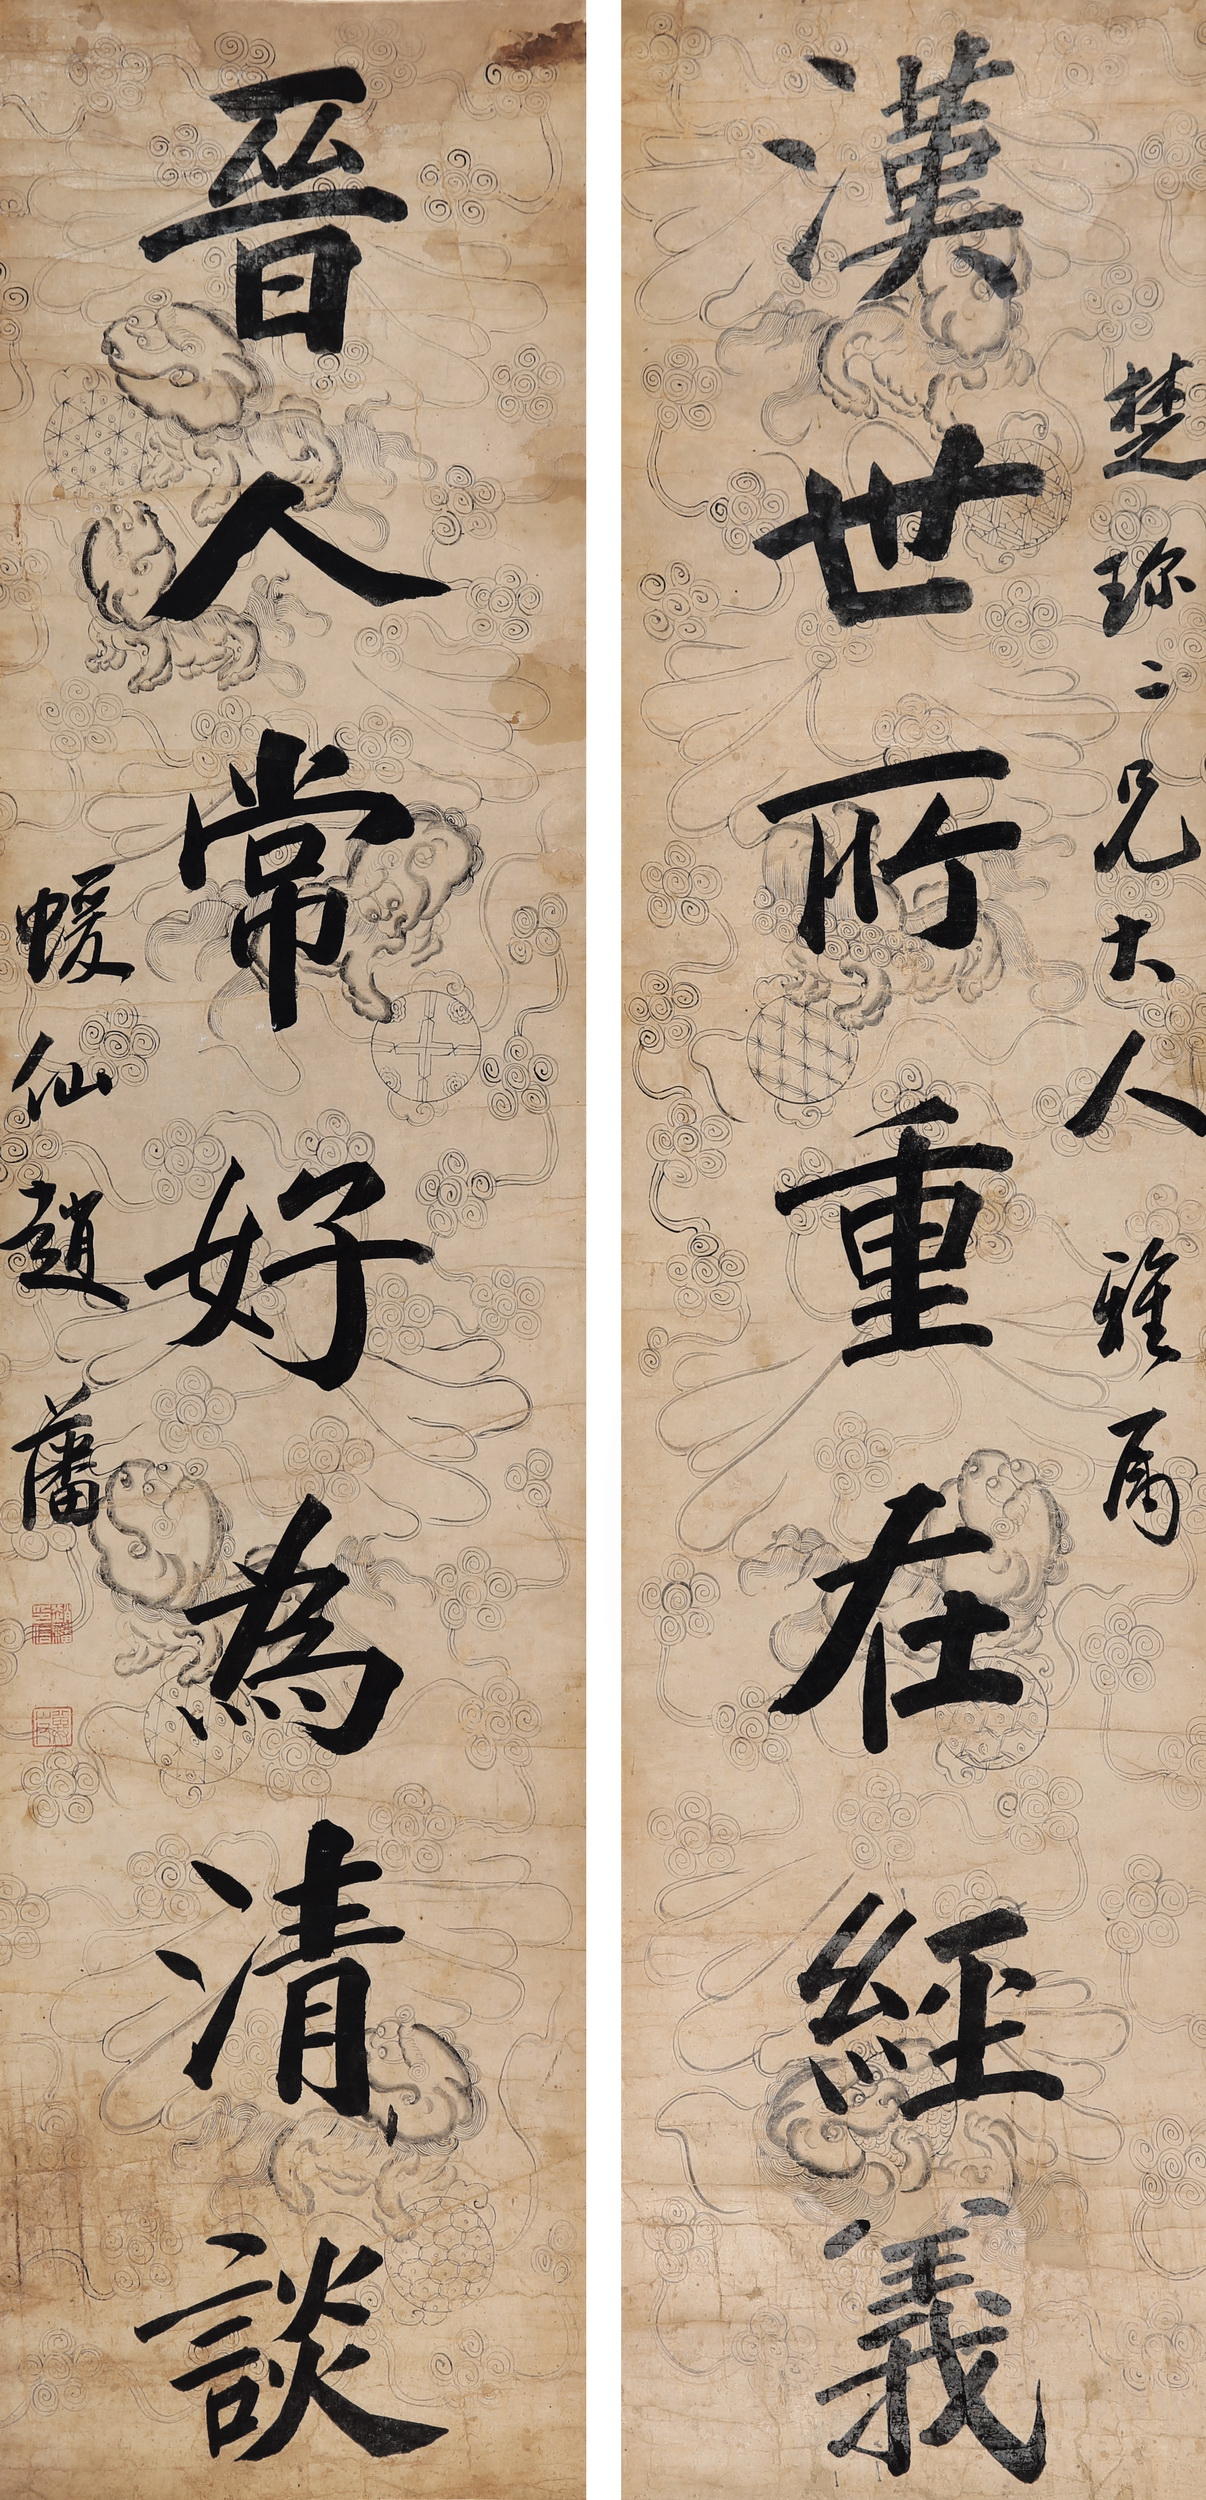 楚珍二兄大人雅属
漢世所重在經義
晉人常好為清談
蝯仙趙藩